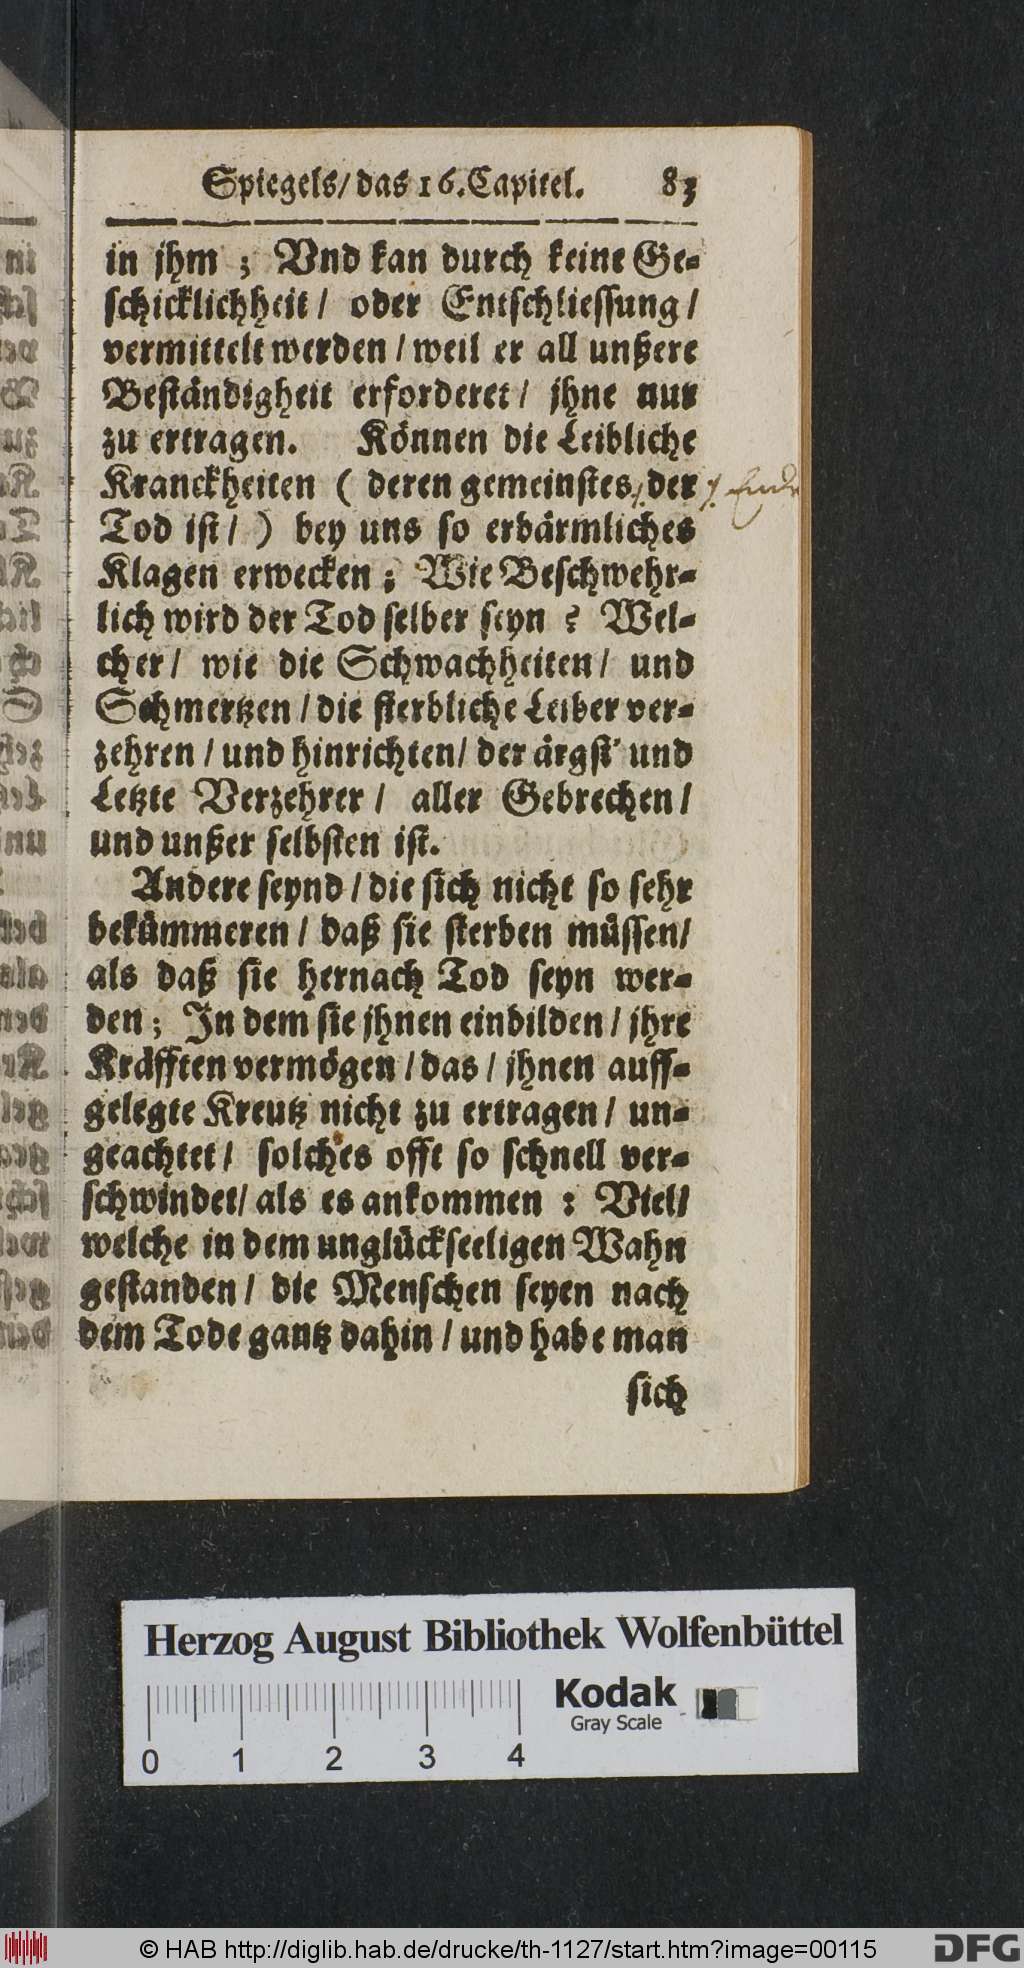 Spiegels/ das 16. Capitel. 83
in jhm ; Vnd kan durch keine Ge-
schicklichheit / oder Entschliessung /
vermittelt werden / weil er all unßere
Beständigheit erforderet / jhne nur
zu ertragen. Können die Leibliche
Kranckheiten ( deren gemeinstes, der
Ende
Tod ist / ) bey uns so erbärmliches
Klagen erwecken ; Wie Beschwehr-
lich wird der Tod selber seyn ? Wel-
cher / wie die Schwachheiten / und
Schmertzen / die sterbliche Leiber ver-
zehren / und hinrichten / der ärgst' und
Letzte Verzehrer / aller Gebrechen /
und unßer selbsten ist.
Andere seynd / die sich nicht so sehr
bekümmeren / daß sie sterben müssen /
als daß sie hernach Tod seyn wer-
den ; In dem sie jhnen einbilden / jhre
Kräfften vermögen / das / jhnen auff-
gelegte Kreutz nicht zu ertragen / un-
geachtet / solches offt so schnell ver-
schwindet / als es ankommen : Viel /
welche in dem unglückseeligen Wahn
gestanden / die Menschen seyen nach
dem Tode gantz dahin / und habe man
sich
Herzog August Bibliothek Wolfenbüttel
Kodak
Gray Scale
0 1 2 3 4
© HAB http://diglib.hab.de/drucke/th-1127/start.htm?image=00115
DFG